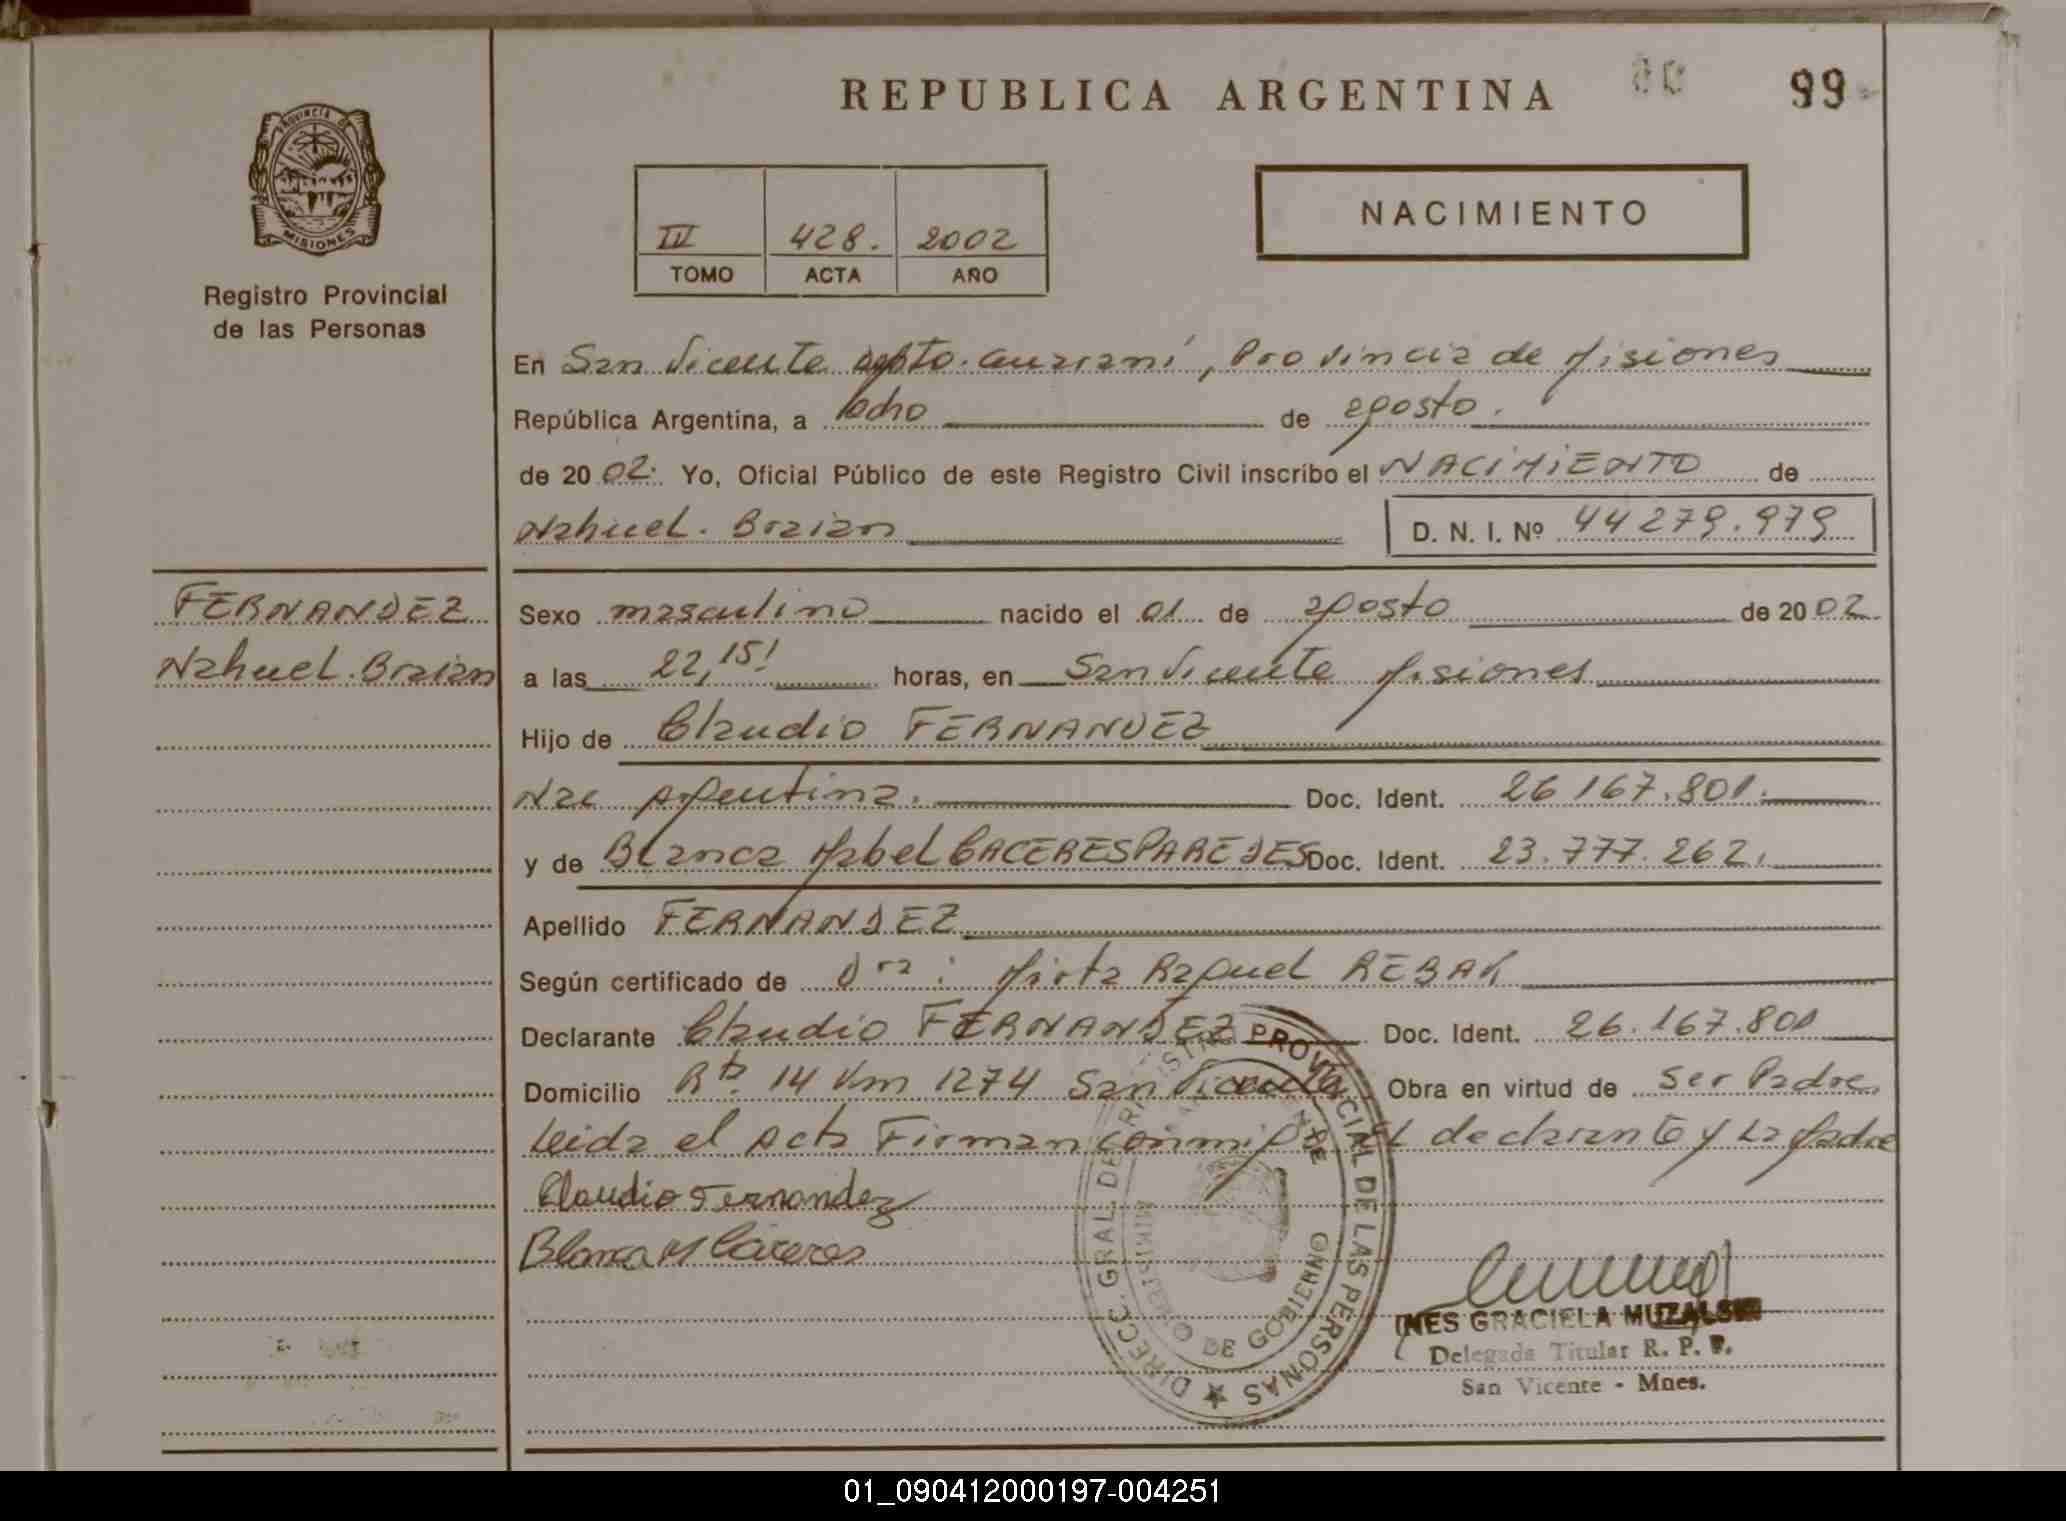 REPUBLICA ARGENTINA
99
PROVINCIA DE
MISIONES
Registro Provincial
de las Personas
NACIMIENTO
III 428. 2002
TOMO ACTA AÑO
En San Vicente Dpto. Guaraní, Provincia de Misiones
República Argentina, a ocho de agosto.
de 20 02. Yo, Oficial Público de este Registro Civil inscribo el NACIMIENTO de
Nahuel. Braian D. N. I. Nº 44279.979
FERNANDEZ
Nahuel. Braian
Sexo masculino nacido el 01 de agosto de 20 02
a las 22,15' horas, en San Vicente Misiones
Hijo de Claudio FERNANDEZ
Nac Argentina. Doc. Ident. 26 167.801.
y de Blanca Mabel CACERES PAREDES Doc. Ident. 23.777.262.
Apellido FERNANDEZ
Según certificado de Dra: Mirta Raquel
Declarante Claudio FERNANDEZ Doc. Ident. 26.167.801
Domicilio 14 Km 1274 San Vicente Obra en virtud de ser Padre
Leida el Acta Firman conmigo EL declarante y La Madre
Claudio Fernandez
Blanca M Caceres
DIRECC. GRAL. DE REGISTRO PROVINCIAL DE LAS PERSONAS
DE GOBIERNO
INES GRACIELA
Delegada Titular R. P. P.
San Vicente - Mnes.
01_090412000197-004251